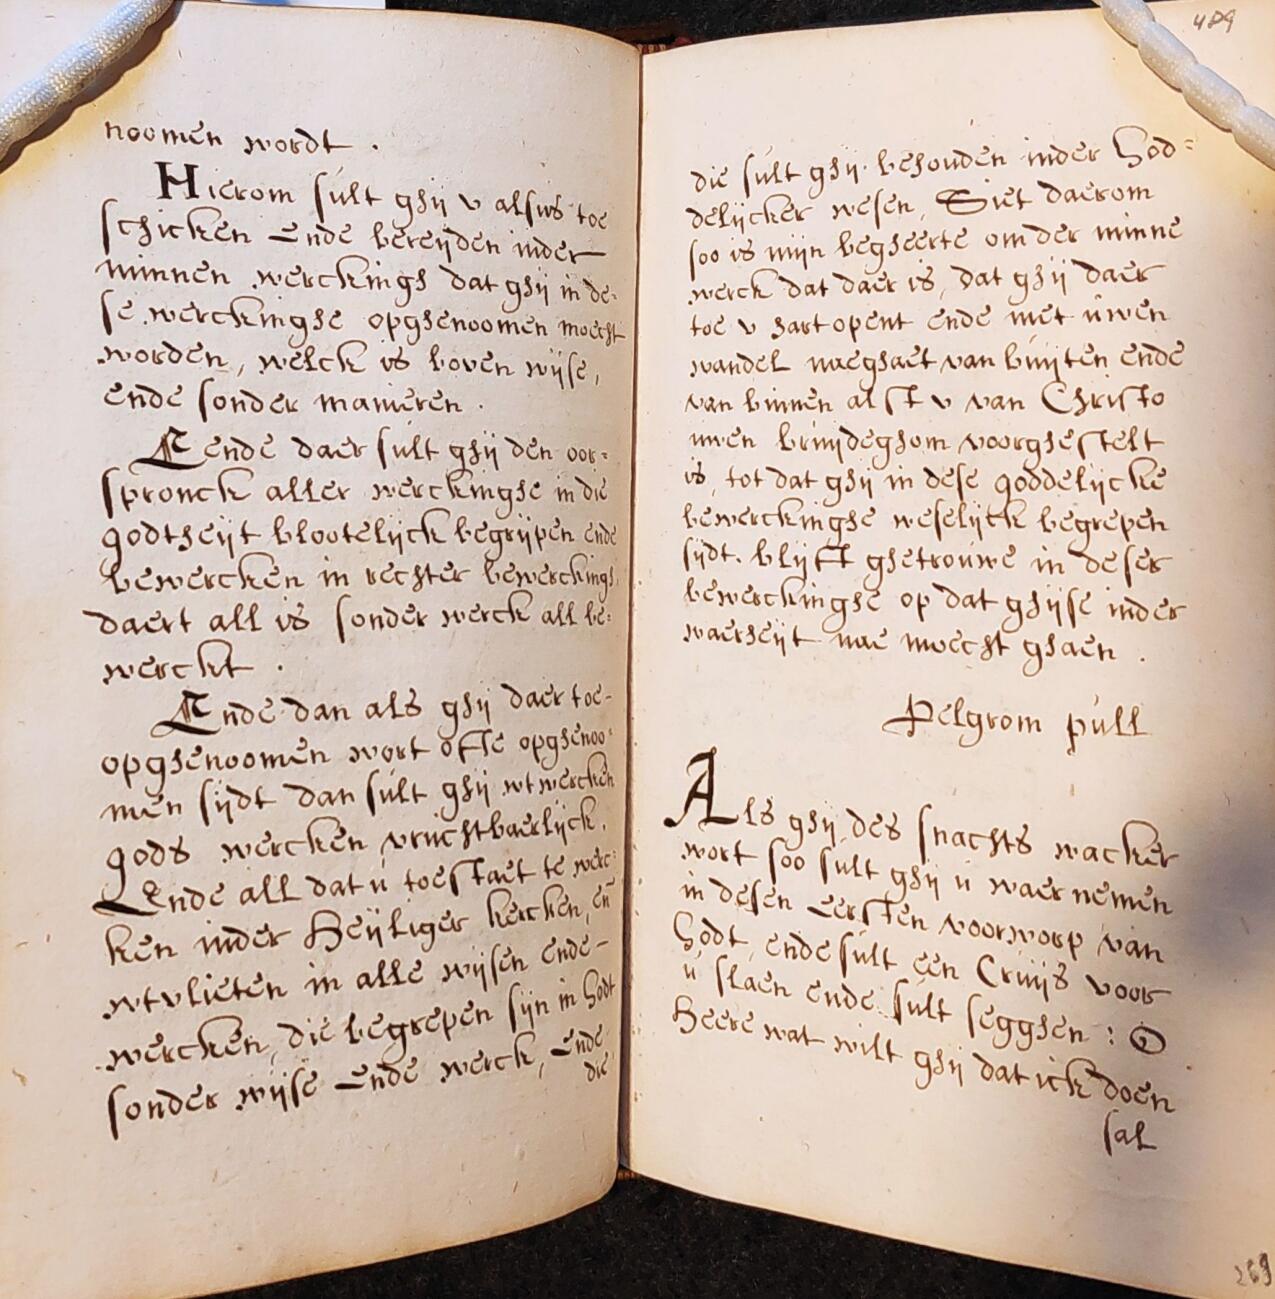 noomen wordt .
Hierom sult ghij v alsus toe
schicken ende bereijden inder
minnen werckings dat ghij in de=
se werckinghe opghenoomen moecht
worden, welck is boven wijse,
ende sonder manieren .
Eende daer sult ghij den oor=
spronck aller werckinghe in die
godtheijt blootelijck begrijpen ende
bewercken in rechter bewerckings
daert all is sonder werck all be=
werckt .
Ende dan als ghij daer toe-
opghenoomen wort ofte opghenoo=
men sijdt dan sult ghij wtwercken
gods wercken vruchtbaerlijck.
Ende all dat ú toestaet te werc=
ken inder Heijliger kercken, eñ
wtvlieten in alle wijsen ende-
wercken, die begrepen sijn in Godt
sonder wijse ende werck, ende
die
489
die sult ghij behouden inder God=
delijcker wesen, Siet daerom
soo is mijn begheerte om der minne
werck dat daer is, dat ghij daer
toe v hart opent ende met úwen
wandel naeghaet van buijten ende
van binnen alst v van Christo
uwen bruijdeghom voorghestelt
is, tot dat ghij in dese goddelijcke
bewerckinghe weselijck begrepen
sijdt. blijft ghetrouwe in deser
bewerckinghe op dat ghijse inder
waerheijt nae moecht ghaen .
Pelgrom púll
Als ghij des snachts wacker
wort soo sult ghij ú waer nemen
in desen eersten voorworp van
Godt, ende sult een Cruijs voor
ú slaen ende sult segghen : O
Heere wat wilt ghij dat ick doen
sal
269